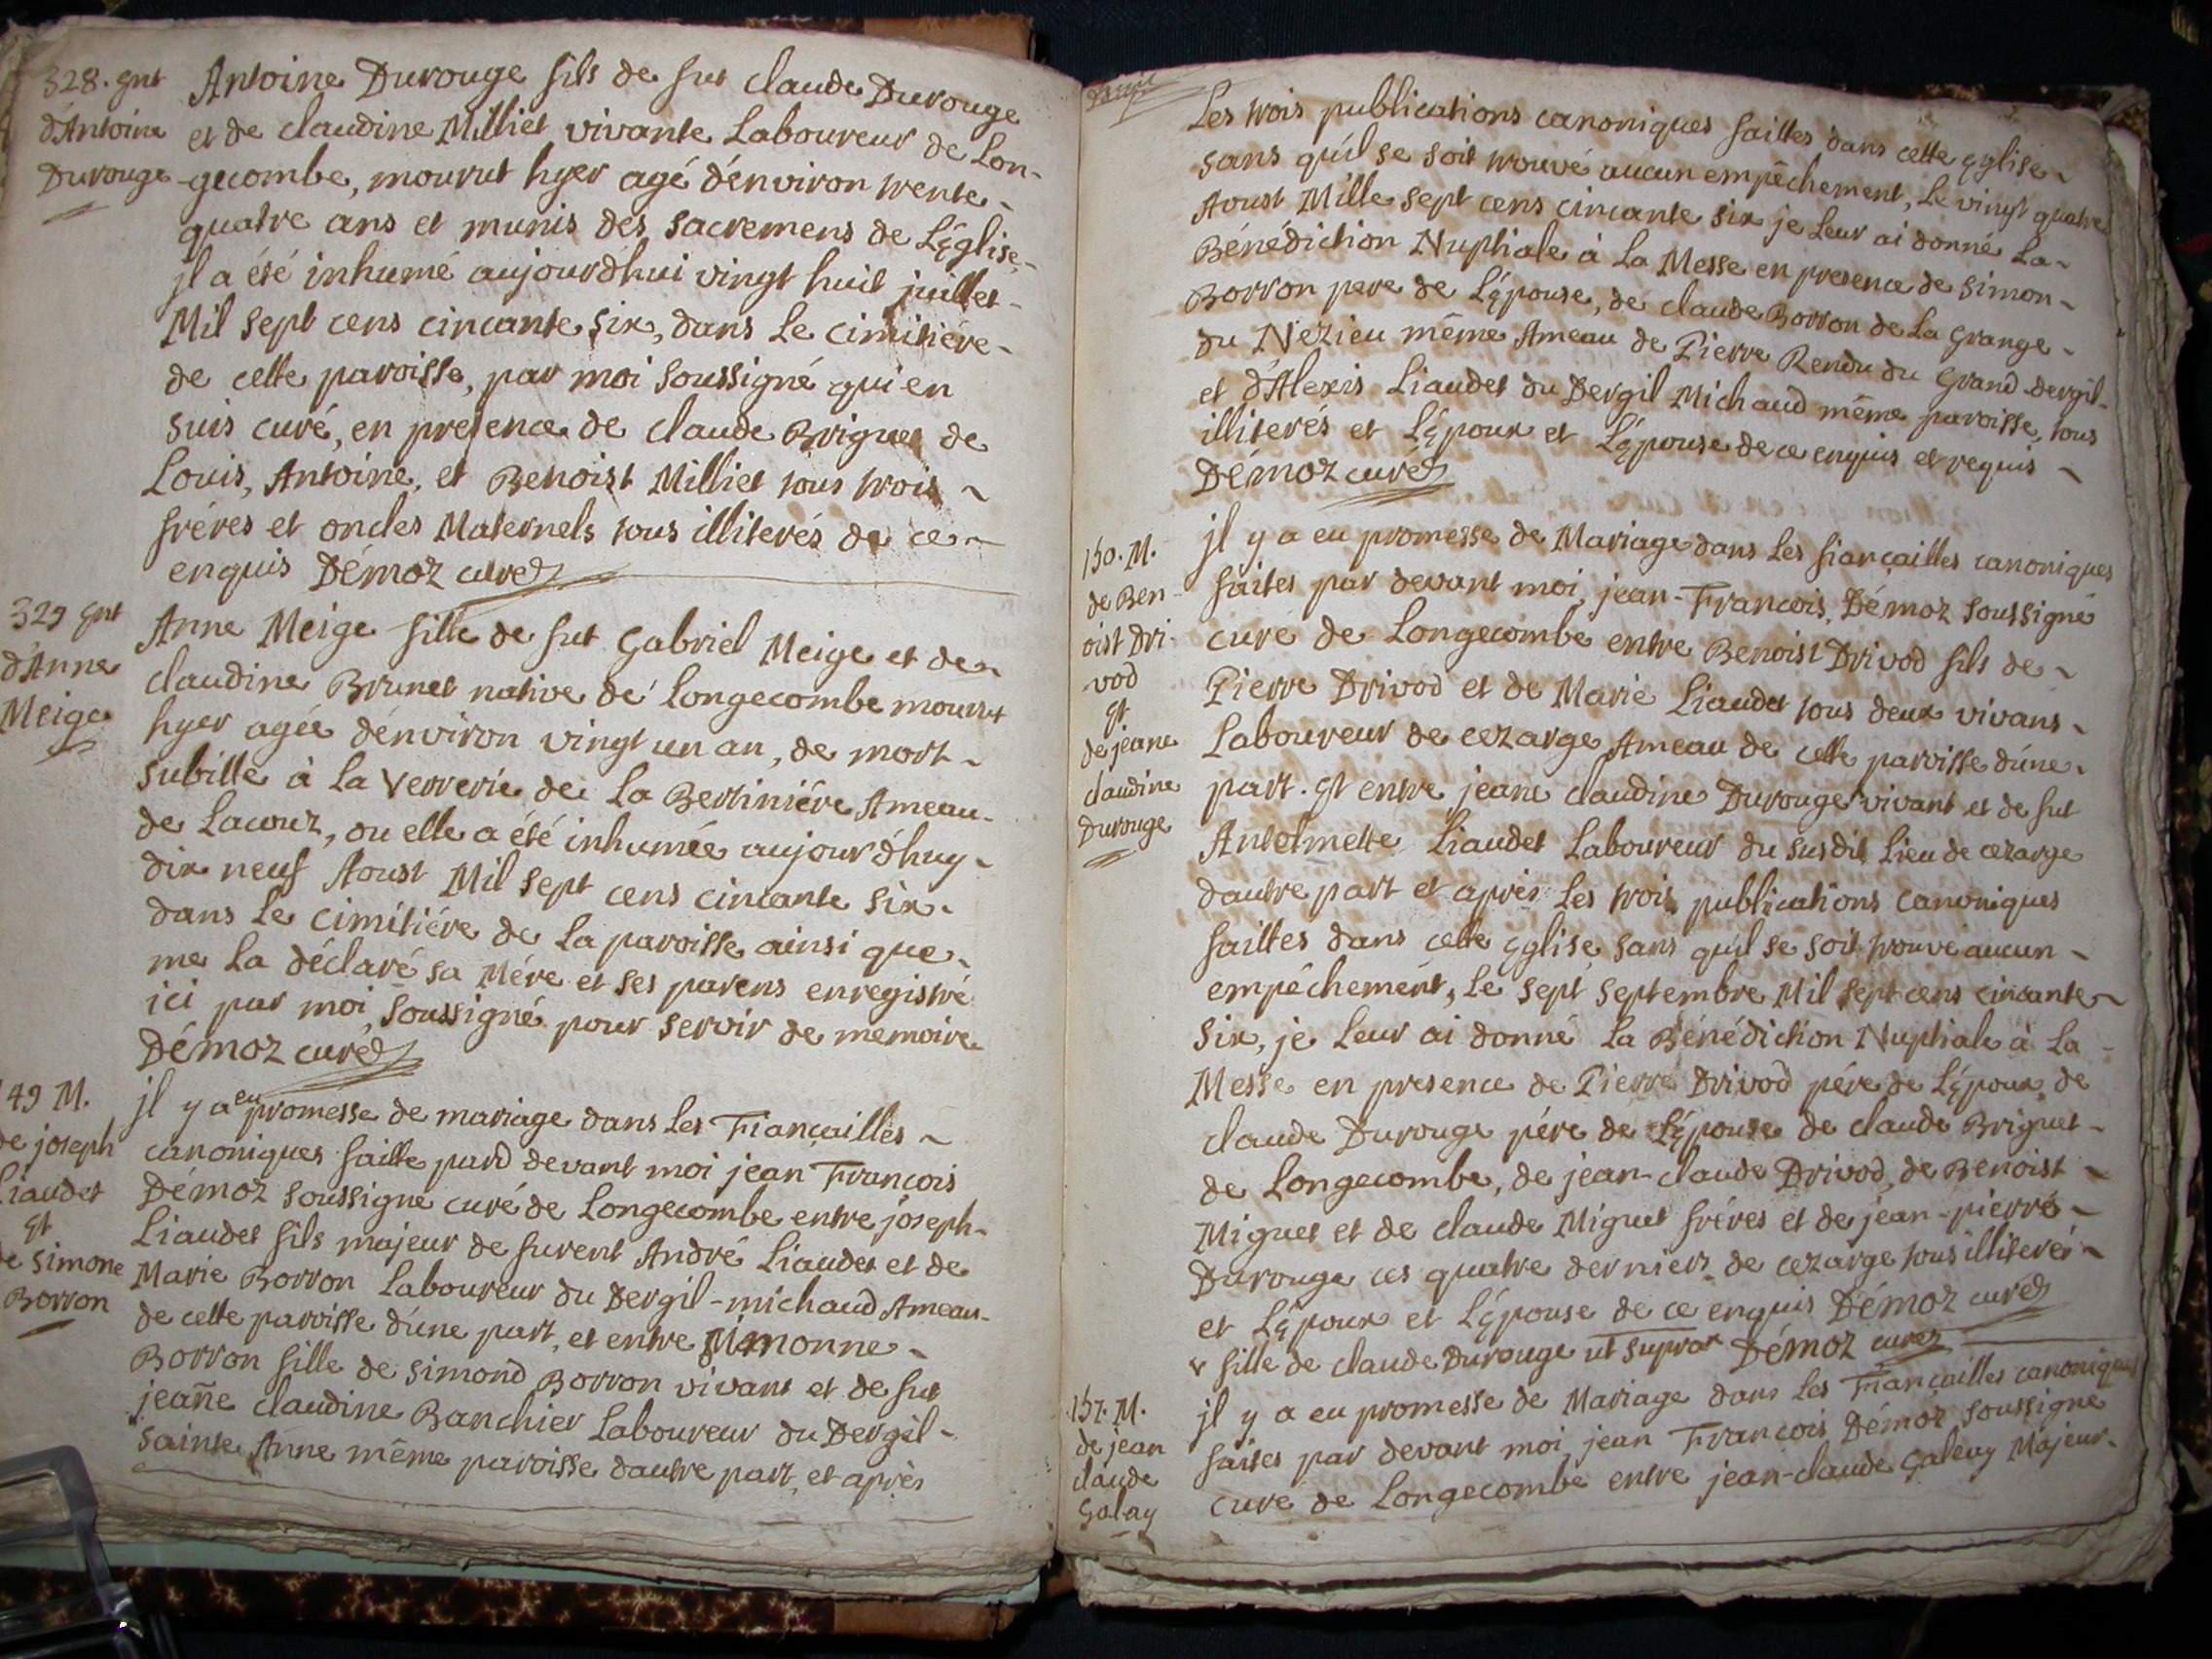 328. Ent
d'Antoine
Durouge
Antoine Durouge fils de fut claude Durouge
et de claudine Milliet vivante Laboureur de Lon-
-gecombe, mourut hyer agé d'énviron trente-
quatre ans et munis des sacremens de L'église,
jl a été inhumé aujourdhui vingt huit juillet-
Mil sept cens cincante six, dans Le cimitiére-
de cette paroisse, par moi soussigné qui en
suis curé, en presence de claude Briguet de
Louis, Antoine, et Benoist Milliet tous trois ~
fréres et oncles Maternels tous illiterés de ce-
enquis Démoz curé
329 Ent
d'Anne
Meige
Anne Meige fille de fut Gabriel Meige et de~
claudine Brunet native de Longecombe mourut
hyer agée dénviron vingt un an, de mort-
subitte à La Verrerie de La Bertiniére Ameau-
de Lacouz, ou elle a été inhumée aujourdhuy-
dix neuf Aoust Mil sept cens cincante six-
dans Le cimitiére de La paroisse ainsi que-
me La déclaré sa Mére et ses parens enregistré
ici par moi soussigné pour servir de memoire
Démoz curé
149 M.
de joseph
Liaudet
Et
de simone
Borron
jl y a eu promesse de mariage dans Les Fiancailles ~
canoniques faitte pard devant moi jean François
Démoz soussigné curé de Longecombe entre joseph-
Liaudet fils majeur de furent André Liaudet et de
Marie Borron Laboureur du Dergil-michaud Ameau-
de cette paroisse d'úne part, et entre Simonne-
Borron fille de simond Borron vivant et de fut
jeañe claudine Banchier Laboureur du Dergil-
sainte Anne même paroisse dautre part, et après
Les trois publications canoniques faittes dans cette Eglise~
sans qu'il se soit trouvé aucun empêchement, Le vingt quatre
Aoust Mille sept cens cincante six je Leur ai donné La~
Bénédiction Nuptiale à La Messe en presence de simon-
Borron pere de L'épouse, de claude Borron de La Grange-
du Nezieu même Ameau de Pierre Rendu du Grand dergil-
et d'Alexis Liaudet du Dergil Michaud même paroisse, tous
illiterés et L'époux et L'épouse de ce enquis et requis ~
Démoz curé
150. M.
de Ben-
oist Dri-
vod
Et
de jeane
claudine
Durouge
jl y a eu promesse de Mariage dans Les fiancailles canoniques
faites par devant moi jean-Francois Démoz soussigné
curé de Longecombe entre Benoist Drivod fils de~
Pierre Drivod et de Marie Liaudet tous deux vivans-
Laboureur de cezarge Ameau de cette paroisse d'úne-
part. Et entre jeane claudine Durouge vivant et de fut
Antelmette Liaudet Laboureur du susdit Lieu de cezarge
dautre part et après Les trois publications canoniques
faittes dans cette Eglise sans qu'il se soit trouvé aucun-
empêchemént, Le sept septembre Mil sept cens cincante~
six, je Leur ai donné La Bénédiction Nuptiale à La-
Messe en presence de Pierre Drivod pére de L'époux de
claude Durouge pére de L'épouse de claude Briguet-
de Longecombe, de jean-claude Drivod, de Benoist-
Miguet et de claude Miguet fréres et de jean-pierre-
Durouge ces quatre derniers de cezarge tous illiterés-
et L'époux et L'épouse de ce enquis Démoz curé
fille de claude Durouge ut supra Démoz curé
151. M.
de jean
claude
Galay
jl y a eu promesse de Mariage dans Les Fiancailles canoniques
faites par devant moi jean François Démoz soussigné
curé de Longecombe entre jean-claude Galay Majeur-